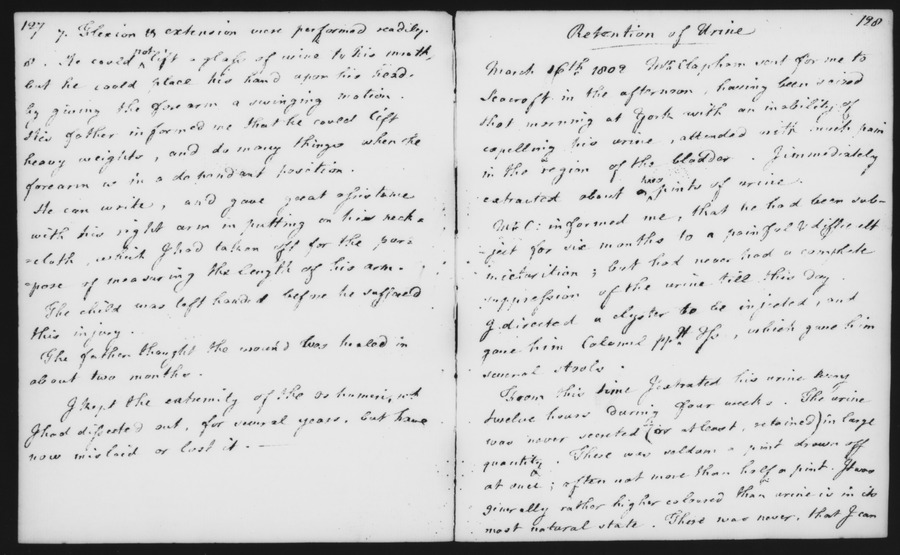 127
7. Flexion & extension were performed readily.
8. He could not lift a glass of wine to his mouth,
but he could place his hand upon his head
by giving the forearm a swinging motion.
His father informed me that he could lift
heavy weights, and do many things when the
forearm is in a dependant position.
He can write, and gave great assistance
with his right arm in putting on his neck=
=cloth, which I had taken off for the pur=
=pose of measuring the length of his arm.
The child was left handed before he suffered
this injury.
The father thought the wound was healed in
about two months.
I kept the extremity of the os humeri, wh
I had dissected out, for several years, but have
now mislaid or lost it. —
128
Retention of Urine
March 16th 1802 Mr Clapham sent for me to
Seacroft in the afternoon, having been seized
that morning at York with an inability of
expelling his urine, attended with much pain
in the region of the bladder. I immediately
extracted about two pints of urine.
Mr C: informed me, that he had been sub=
=ject for six months to a painful & difficult
micturition; but had never had a complete
suppression of the urine till this day
I directed a clyster to be injected, and
gave him Calomel ppt, which gave him
several stools.
From this time I extracted his urine every
twelve hours during four weeks. The urine
was never secreted (or at least, retained) in large
quantity. There was seldom a pint drawn off
at once; often not more than half a pint. It was
generally rather higher coloured than urine is in its
most natural state. There was never, that I can